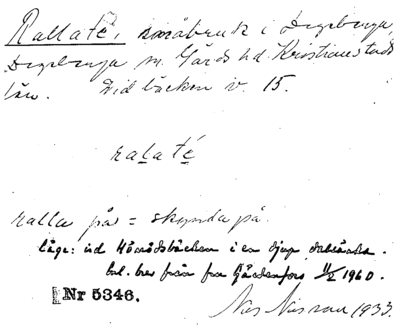 Rallaté, småbruk i Degeberga,
Degeberga sn. Gärds hd. Kristianstads
län. Vid bäcken v. 15.
ralaté
ralla på = skynda på.
läge: vid Hörrödsbäcken i en djup
enl. brev från fru Gärdenfors 11/2 1960.
Nr 5346.
Nils Nilsson 1933.